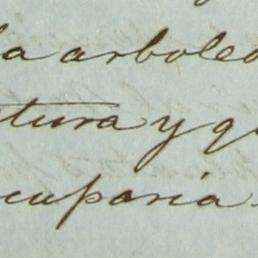 la arboled
tura y q
cuparia